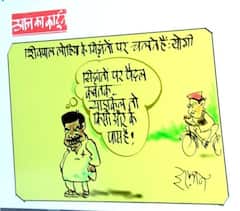 आज का कार्टून
शिवपाल लोहिया के सिद्धांतों पर चलते हैं: योगी
सिद्धांतों पर पैदल
कबतक-
साइकल तो
किसी और के
पास है!
इरफ़ान